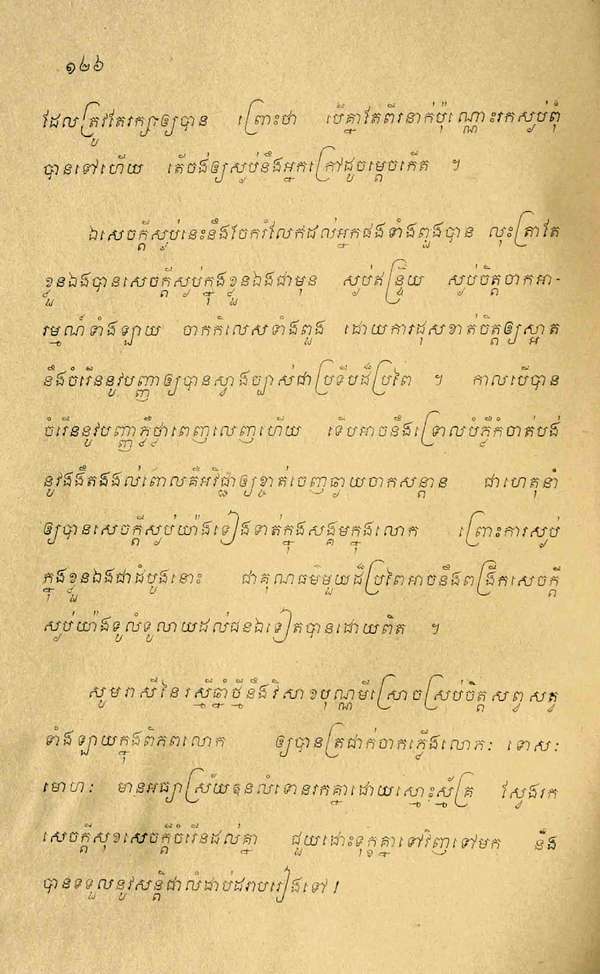 ១២៦
ដែលត្រូវតែរក្សាឲ្យបាន ព្រោះថា បើគ្នាតែពីរនាក់ប៉ុណ្ណោះរកស្ងប់ពុំ
បានទៅហើយ តើចង់ឲ្យស្ងប់នឹងអ្នកក្រៅដូចម្ដេចកើត ។
ឯសេចក្ដីស្ងប់នេះនឹងចែករំលែកដល់អ្នកផងទាំងពួងបាន លុះត្រាតែ
ខ្លួនឯងបានសេចក្ដីស្ងប់ក្នុងខ្លួនឯងជាមុន ស្ងប់ឥន្ទ្រិយ ស្ងប់ចិត្តចាកអា-
រម្មណ៍ទាំងឡាយ ចាកកិលេសទាំងពួង ដោយការដុសខាត់ចិត្តឲ្យស្អាត
នឹងចំរើននូវបញ្ញាឲ្យបានស្វាងច្បាស់ជាប្រទីបដ៏ប្រពៃ ។ កាលបើបាន
ចំរើននូវបញ្ញាភ្លឺថ្លាពេញលេញហើយ ទើបអាចនឹងទ្រោលបំភ្លឺកំចាត់បង់
នូវងងឹតងងល់ពោលគឺអវិជ្ជាឲ្យខ្ចាត់ចេញឆ្ងាយចាកសន្តាន ជាហេតុនាំ
ឲ្យបានសេចក្ដីស្ងប់យ៉ាងទៀងទាត់ក្នុងសង្គមក្នុងលោក ព្រោះការស្ងប់
ក្នុងខ្លួនឯងជាដំបូងនោះ ជាគុណធម៌មួយដ៏ប្រពៃអាចនឹងពង្រីកសេចក្ដី
ស្ងប់យ៉ាងទូលំទូលាយដល់ជនឯទៀតបានដោយពិត ។
សូមរាសីនៃរស្មីឆ្នាំថ្មីនឹងវិសាខបុណ្ណមីស្រោចស្រប់ចិត្តសព្វសត្វ
ទាំងឡាយក្នុងពិភពលោក ឲ្យបានត្រជាក់ចាកភ្លើងលោភៈ ទោសៈ
មោហៈ មានអធ្យាស្រ័យទុនលំទោនរកគ្នាដោយស្មោះស្ម័គ្រ ស្វែងរក
សេចក្ដីសុខសេចក្ដីចំរើនដល់គ្នា ជួយដោះទុក្ខគ្នាទៅវិញទៅមក នឹង
បានទទួលនូវសន្តិជាលំដាប់ដរាបរៀងទៅ !